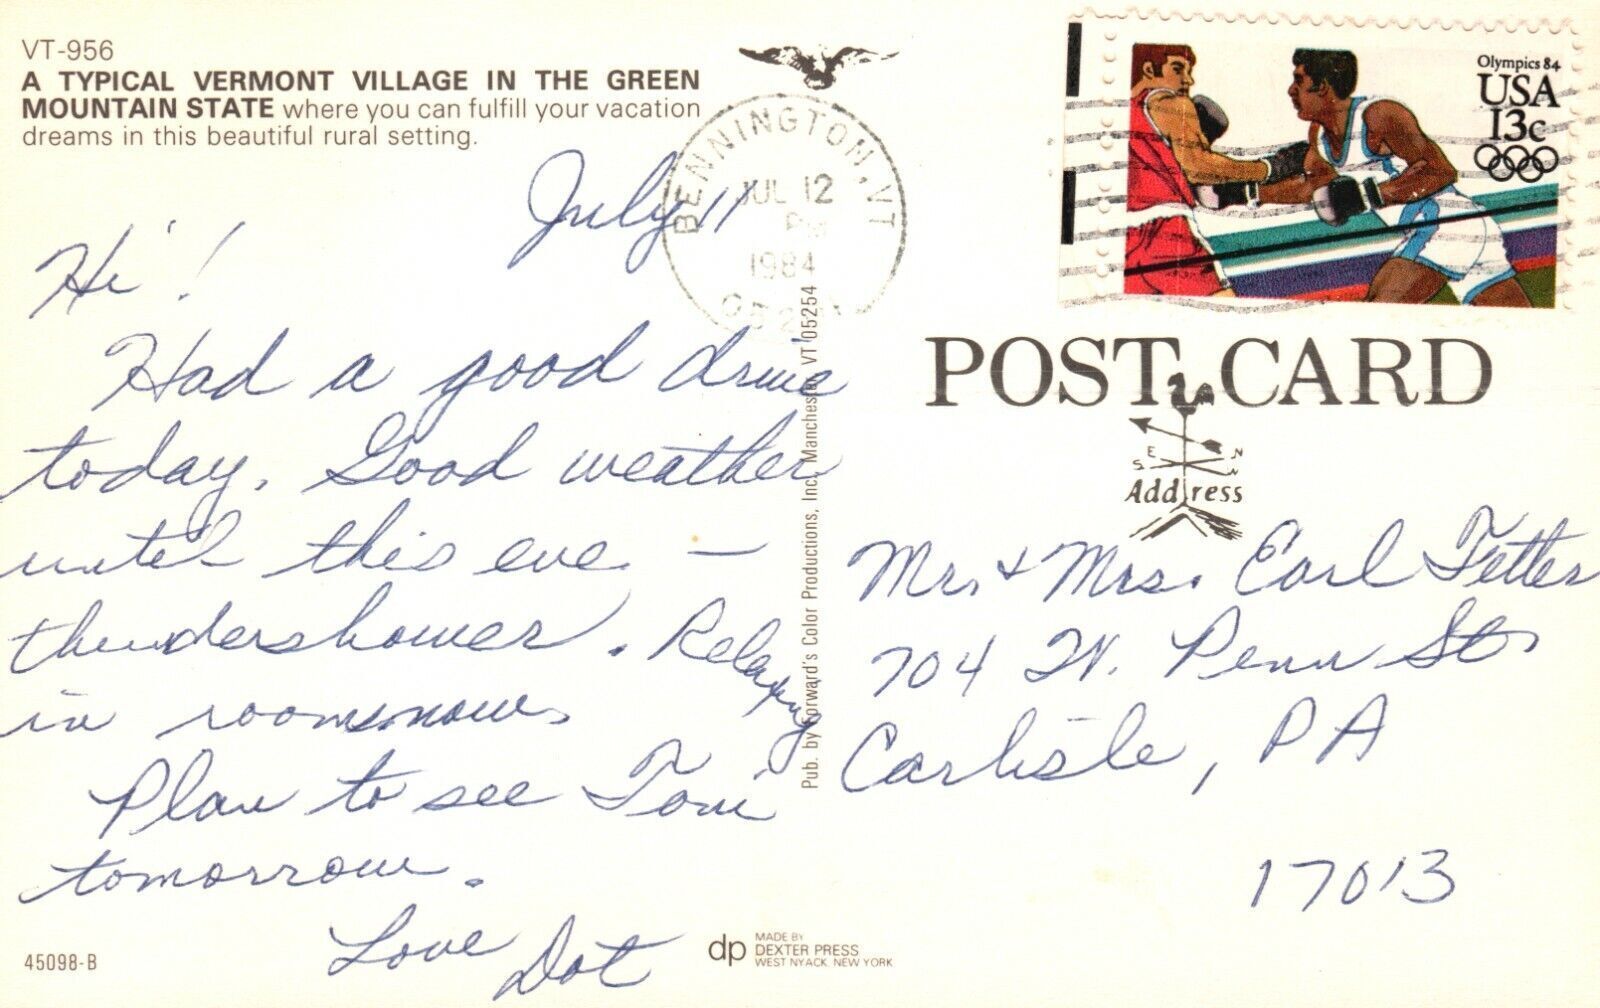 VT-956
A TYPICAL VERMONT VILLAGE IN THE GREEN
MOUNTAIN STATE where you can fulfill your vacation
dreams in this beautiful rural setting.
BENNINGTON, VT
JUL 12
PM
1984
Olympics 84
USA
13c
July 11
Hi!
Had a good drive
today. Good weather
until this eve —
thundershower. Relaxing
in rooms now.
Plan to see Tom
tomorrow.
Love
Dot
Pub. by Forward's Color Productions, Inc., Manchester, VT 05254
POST CARD
E N
S W
Address
Mr. & Mrs. Earl Fetter
704 W. Penn St.
Carlisle, PA
17013
45098-B
dp MADE BY
DEXTER PRESS
WEST NYACK, NEW YORK